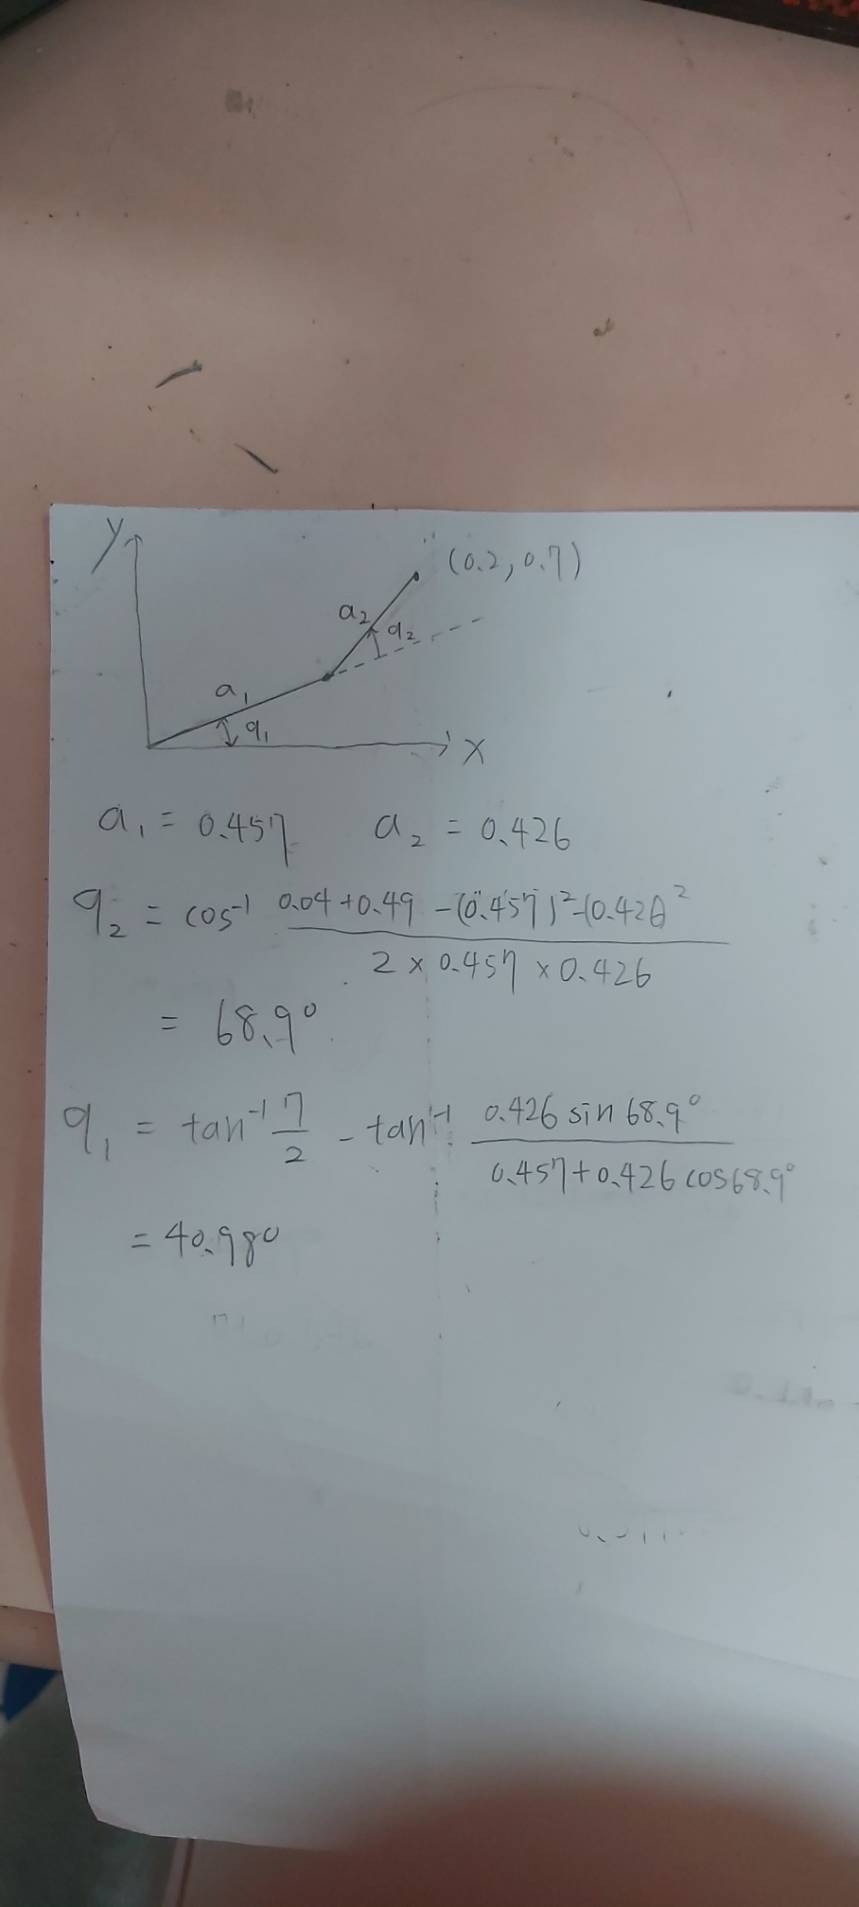 y
(0.2, 0.7)
a₂
q₂
a₁
q₁
x
a₁ = 0.457 a₂ = 0.426
q₂ = cos⁻¹ (0.04+0.49 -(0.457)²-(0.426)²) / (2 × 0.457 × 0.426)
= 68.9°
q₁ = tan⁻¹ 7/2 - tan⁻¹ (0.426 sin 68.9°) / (0.457+0.426 cos68.9°)
= 40.98°